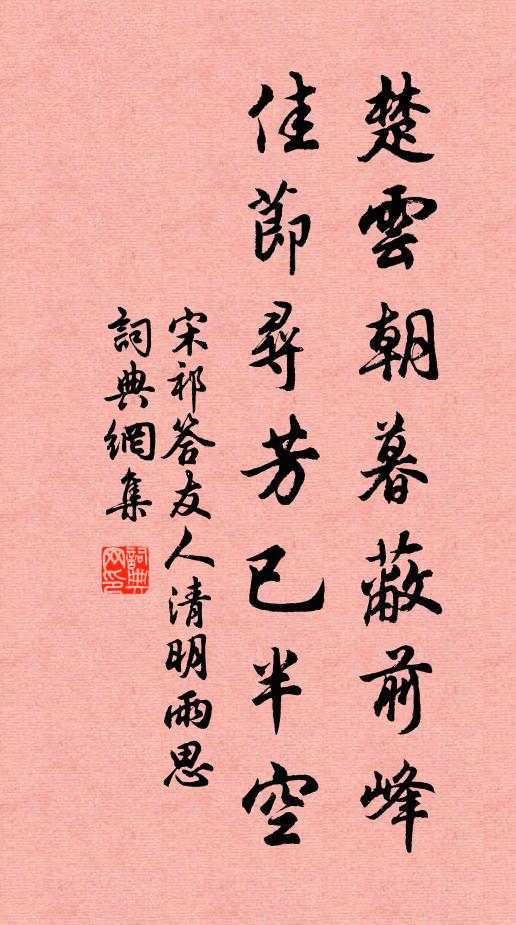 楚雲朝暮蔽前峰
佳節尋芳已半空
宋祁答友人清明雨思
詞典網集
詞典网印